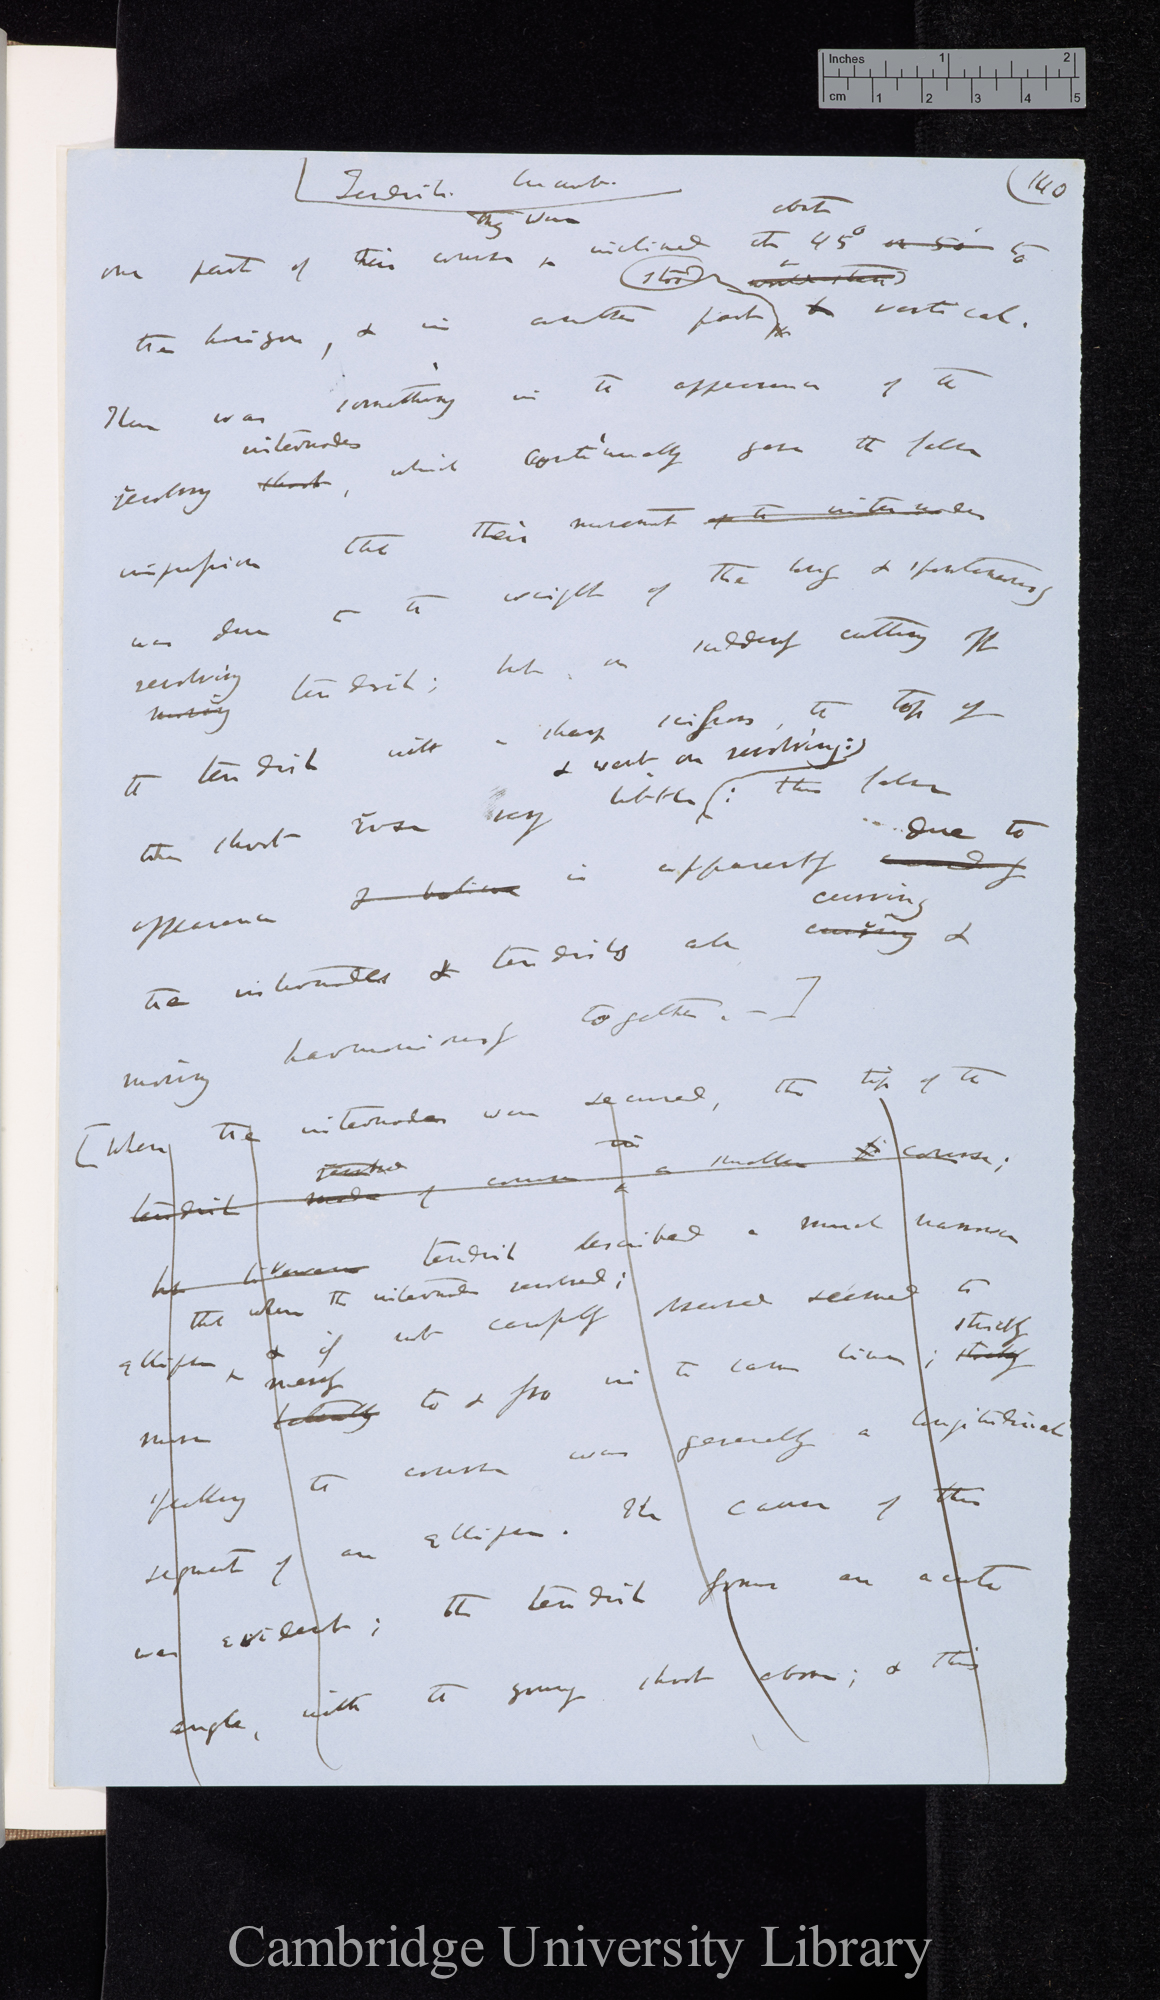 Inches 1 2
cm 1 2 3 4 5
Tendril
140
they were about
one part of their course inclined at 45° or 50° to
stood would stand
the horizon, & in another part vertical.
There was something in the appearance of the
internodes
revolving shoot, which continually gave the false
impression that their movement of the internodes
was due to the weight of the long & spontaneously
revolving
moving tendril; but, on suddenly cutting off
the tendril with sharp scissors, the top of
& went on revolving:
the shoot rose very little: this false
due to
appearance I believe is apparently
curving
the internodes & tendrils all curving &
moving harmoniously together. —]
[When the internodes were secured, the tip of the
tendril made of course a smaller course;
but likewise tendril described a much narrower
that when the internodes revolved;
ellipse, & if not carefully observed seemed to
merely strictly
move to & fro in the same line; strictly
speaking the course was generally a longitudinal
segment of an ellipse. The cause of this
was evident; the tendril forms an acute
angle, with the young shoot above; & this
Cambridge University Library